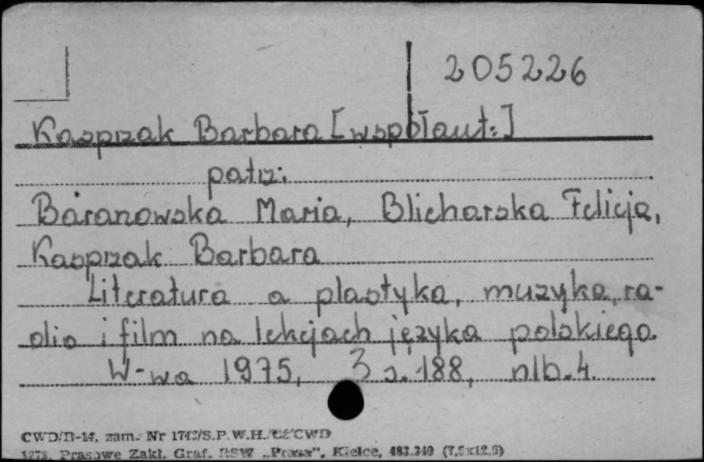 205226
Kasprzak Barbara [współaut.]
patrz:
Baranowska Maria, Blicharska Felicja,
Kasprzak Barbara
Literatura a plastyka, muzyka, ra-
dio i film na lekcjach języka polskiego.
W-wa 1975, s. 188, nlb. 4.
CWD/B-14, zam. Nr /S.P.W.H./ /CWD
Prasowe Zakł. Graf. RSW „Prasa”, Kielce, (7,5x12,5)